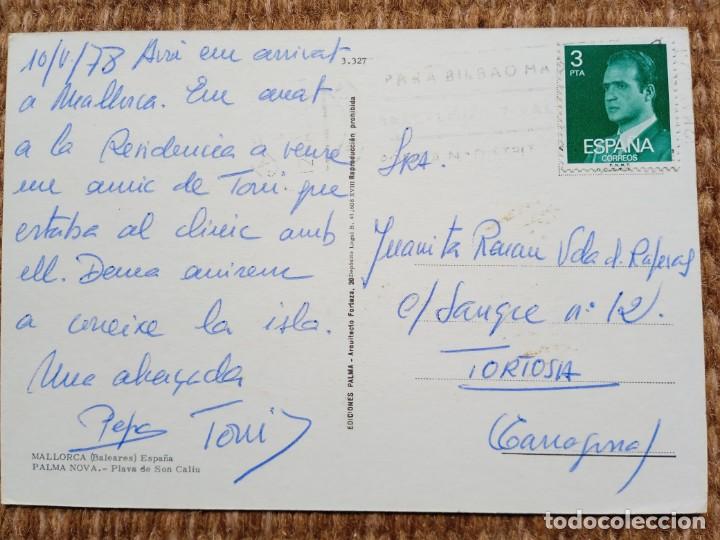 10/V/78 Avui em arrivat
a Mallorca. Em anat
a la Residencia a veure
un amic de Toni que
estaba al clinic amb
ell. Dema anirem
a coneixe la isla.
Una abraçada
Pepa Toni
MALLORCA (Baleares) España
PALMA NOVA.- Playa de Son Caliu
3.327
EDICIONES PALMA - Arquitecto Forteza, 20 Depósito Legal B. 41.608 XVIII Reproducción prohibida
PARA BILBAO
3
PTA
ESPAÑA
CORREOS
F.N.M.T.
SRA.
Juanita Vda d.
c/ Sangre nº 12.
TORTOSA
(Tarragona)
todocoleccion
todocoleccion.net